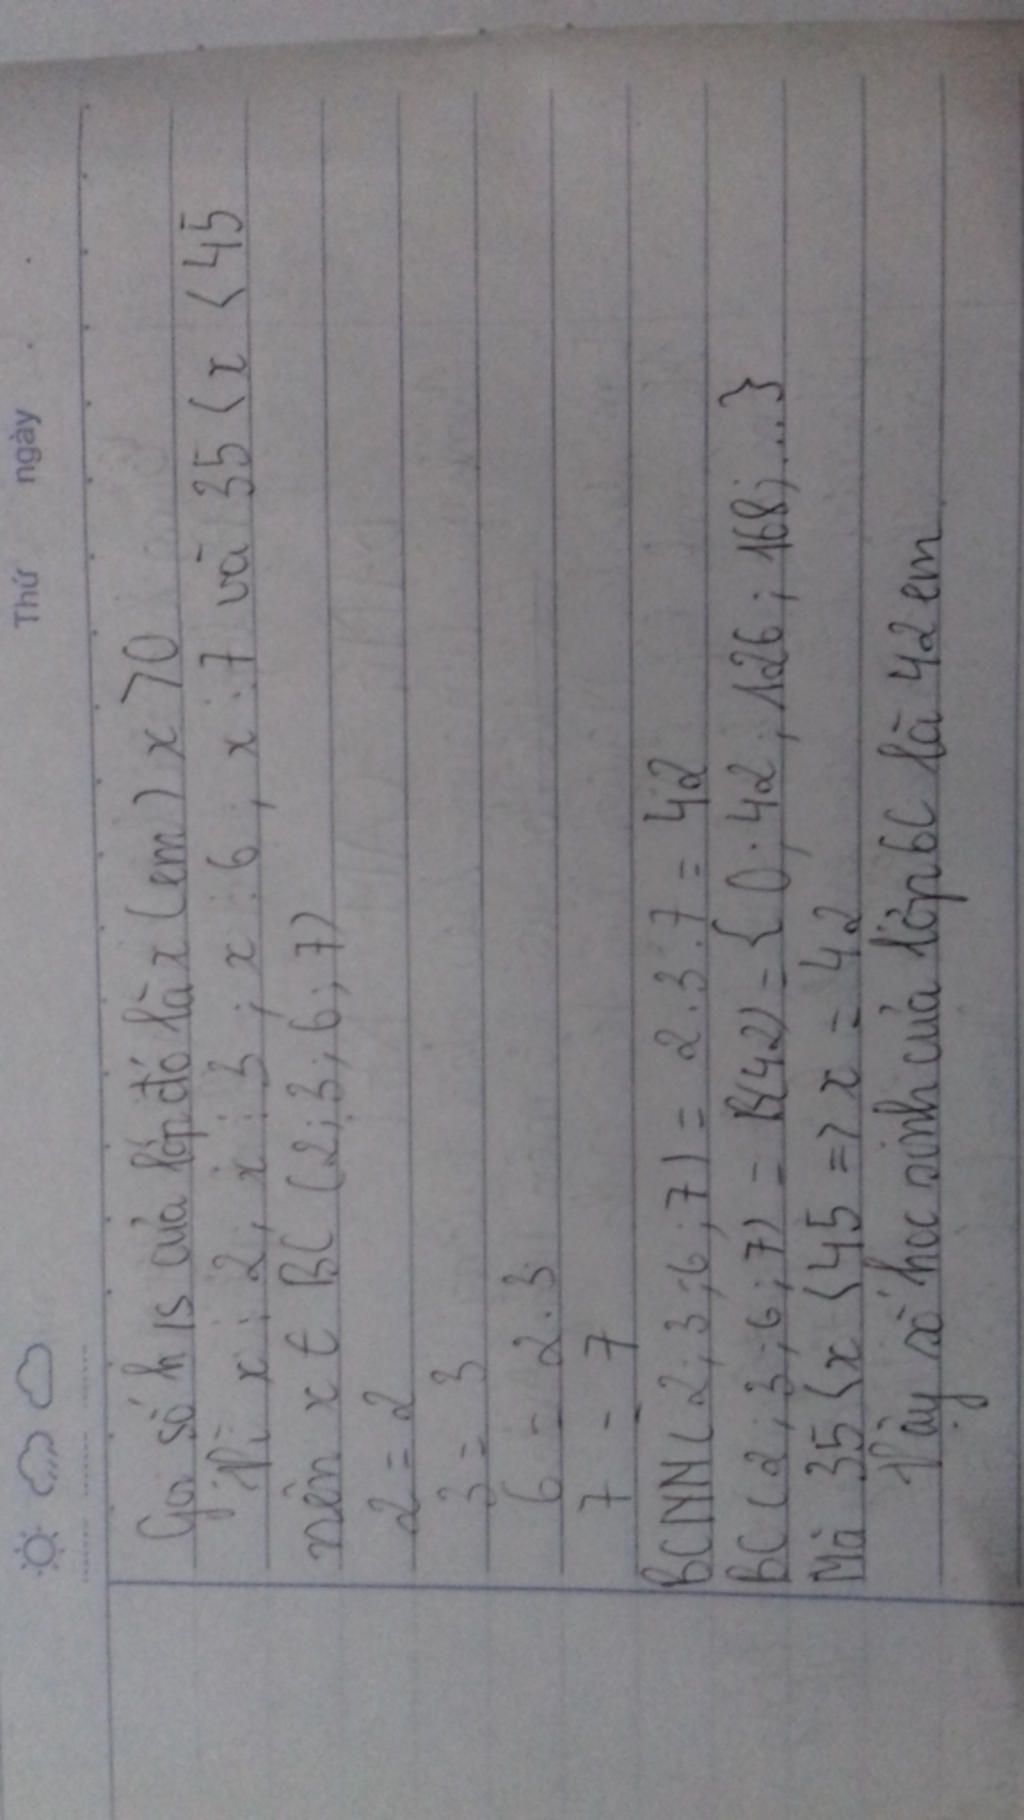 Thứ ngày
Gọi số h is của lớp đó là x (em) x > 0
Vì x ⋮ 2, x ⋮ 3 ; x ⋮ 6 , x ⋮ 7 và 35 < x < 45
nên x ∈ BC (2 ; 3 ; 6 ; 7)
2 = 2
3 = 3
6 = 2 . 3
7 = 7
BCNN (2 ; 3 ; 6 ; 7) = 2 . 3 . 7 = 42
BC (2 ; 3 ; 6 ; 7) = B(42) = { 0 ; 42 ; 126 ; 168 ; ... }
Mà 35 < x < 45 => x = 42
Vậy số học sinh của lớp 6C là 42 em